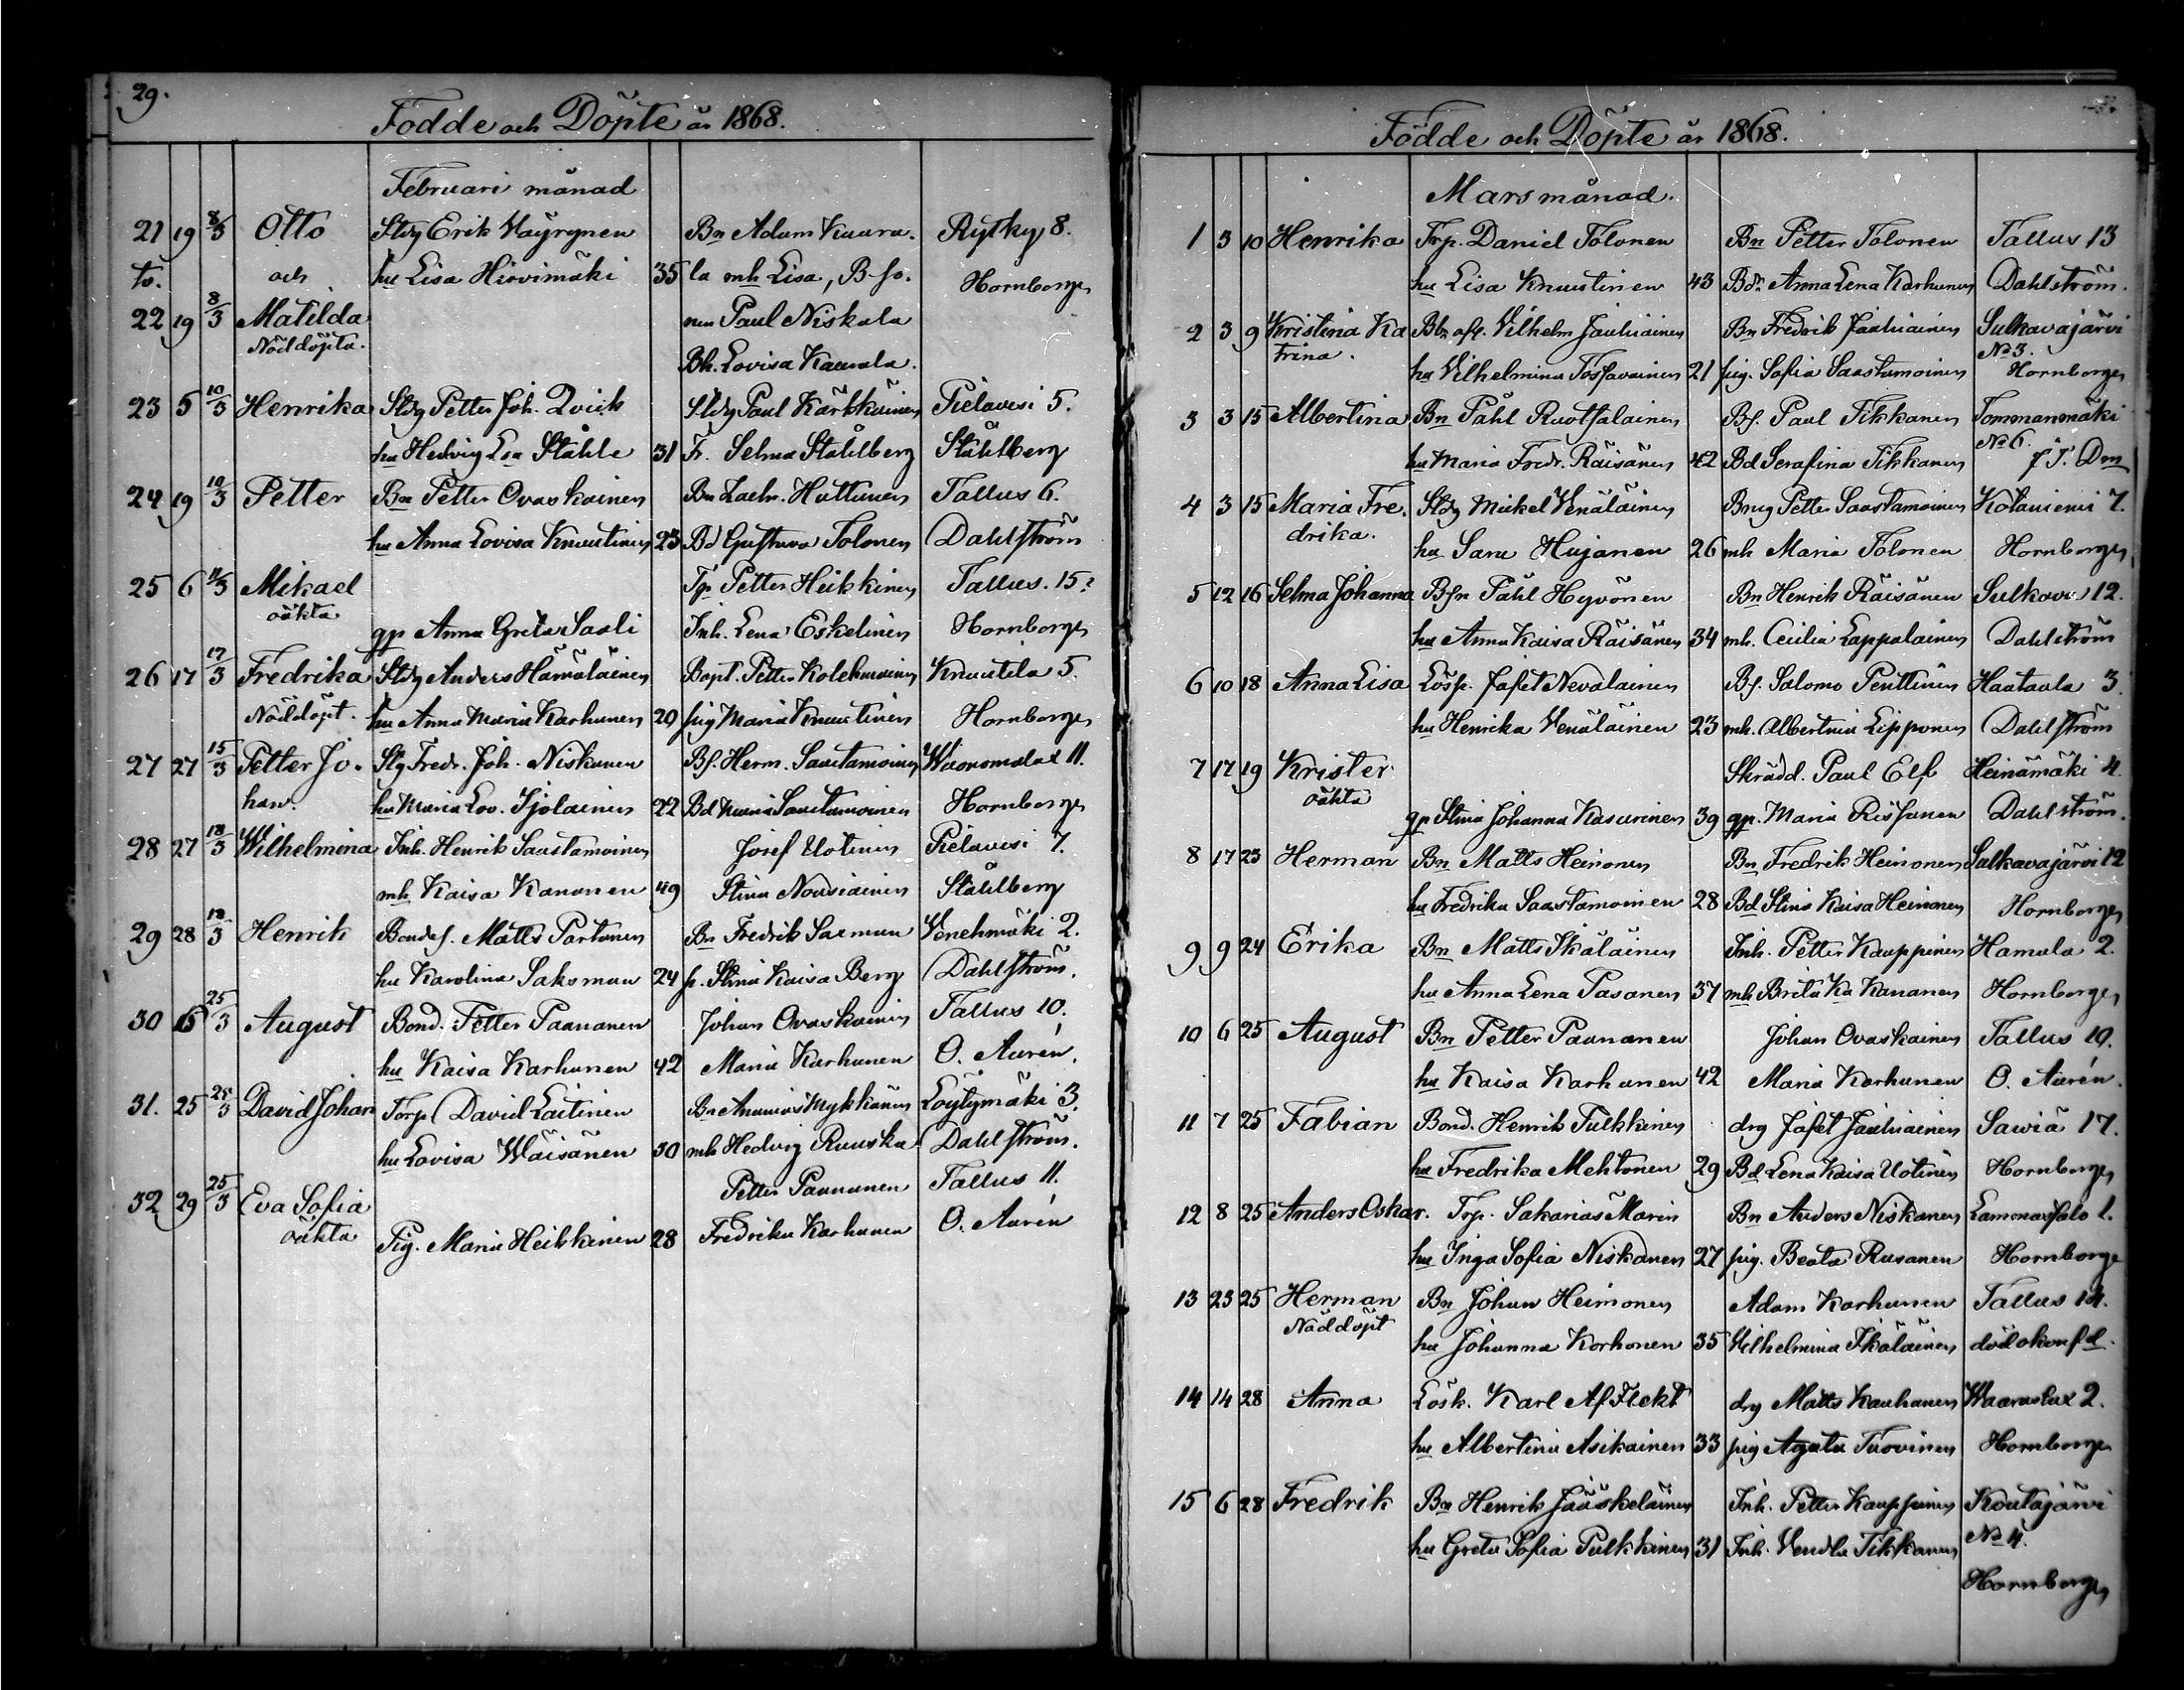 29.
Födde och Döpte år 1868.
Februari månad
21 19 8/3 Otto Stdg Erik Wäyrynen Bn Adam Kaura- Rytky 8.
tv. och hu Lisa Hirvimäki 35 la mh Lisa, B fo. Hornborg
22 19 8/3 Matilda nen Paul Niskala
Nöddöpta. Bh. Lovisa Kaurala.
23 5 10/3 Henrika Stdg Petter Joh. Qvick Stdg Paul Kärkkäinen Pielavesi 5.
hu Hedvig Lsa Ståhle 31 Fr. Selma Ståhlberg Ståhlberg
24 19 10/3 Petter Bn Petter Ovaskainen Bn Zachr. Huttunen Tallus 6.
hu Anna Lovisa Knuutinen 23 Bd Gustava Tolonen Dahlström
25 6 11/3 Mikael Tp Petter Heikkinen Tallus. 15
oäkta
gp Anna Greta Saali Inh. Lena Eskelinen Hornborg
26 17 17/3 Fredrika Stdg Anders Hämäläinen Bopt. Petter Kolehmainen Knuutila 5.
Nöddöpt. hu Anna Maria Karhunen 29 pig Maria Knuutinen Hornborg
27 27 15/3 Petter Jo- Stg Fredr. Joh. Niskanen Bf. Herm. Saastamoinen 11.
han. hu Maria Lov. Tjolainen 22 Bd Maria Saastamoinen Hornborg
28 27 18/3 Wilhelmina Inh. Henrik Saastamoinen Josef Uotinen Pielavesi 7.
mh Kaisa Kananen 49 Stina Nousiainen Ståhlberg
29 28 18/3 Henrik Bondes. Matts Partanen Bn Fredrik Saxman Venehmäki 2.
hu Karolina Saksman 24 p. Stina Kaisa Berg Dahlström.
30 15 25/3 August Bond. Petter Paananen Johan Ovaskainen Tallus 10.
hu Kaisa Karhunen 42 Maria Karhunen O. Aurén.
31. 25 25/3 David Johan Torp David Laitinen Bn Ananias Mykkänen Löytymäki 3.
hu Lovisa Wäisänen 30 mh Hedvig Ruuska Dahlström.
32 29 25/3 Eva Sofia Petter Paananen Tallus 11.
oäkta Pig. Maria Heikkinen 28 Fredrika Karhunen O. Aurén
Födde och Döpte år 1868.
Mars månad.
1 3 10 Henrika Trp. Daniel Tolonen Bn Petter Tolonen Tallus 13
hu Lisa Knuutinen 43 Bdr Anna Lena Karhunen Dahlström.
2 3 9 Kristina Ka Vilhelm Jauhiainen Bn Fredrik Jauhiainen Sulkavajärvi
trina. No 3.
hu Vilhelmina Tossavainen 21 pig. Sofia Saastamoinen Hornborg
3 3 15 Albertina Bn Påhl Ruotsalainen Bf. Paul Tikkanen Tommanmäki
No 6.
hu Maria Fredr. Räisänen 42 Bd Serafina Tikkanen f. J. Dm
4 3 15 Maria Fre- Stdg Mickel Venäläinen Bmg Petter Saastamoinen Kotaniemi 7.
drika. hu Sara Hujanen 26 mh Maria Tolonen Hornborg
5 12 16 Selma Johanna Bfn Påhl Hyvönen Bn Henrik Räisänen Sulkava 12.
hu Anna Kaisa Räisänen 34 mh. Cecilia Lappalainen Dahlström
6 10 18 Anna Lisa Lösk. Jafet Nevalainen Bf. Salomo Penttinen Haatala 3.
hu Henrika Venäläinen 23 mh. Albertina Lipponen Dahlström
7 17 19 Krister Skrädd. Paul Elf Heinämäki 4.
oäkta
gp Stina Johanna Kasurinen 39 gp. Maria Rissanen Dahlström.
8 17 23 Herman Bn Matts Heinonen Bn Fredrik Heinonen Sulkavajärvi 12
hu Fredrika Saastamoinen 28 Bd Stina Kaisa Heinonen Hornborg
9 9 24 Erika Bn Matts Ikäläinen Inh. Petter Kauppinen Hamula 2.
hu Anna Lena Pasanen 37 mh Brita Ka Kananen Hornborg
10 6 25 August Bn Petter Paananen Johan Ovaskainen Tallus 10.
hu Kaisa Karhunen 42 Maria Karhunen O. Aurén.
11 7 25 Fabian Bond. Henrik Pulkkinen drg Jafet Jauhiainen Sawiä 17.
hu Fredrika Mehtonen 29 Bd Lena Kaisa Uotinen Hornborg
12 8 25 Anders Oskar. Trp. Sakarias Marin Bn Anders Niskanen Lammassalo 1.
hu Inga Sofia Niskanen 27 pig. Beata Rusanen Hornborg
13 23 25 Herman Bn Johan Heimonen Adam Karhunen Tallus 14.
Nöddöpt hu Johanna Korhonen 35 Vilhelmina Ikäläinen död okonfd.
14 14 28 Anna Lösk. Karl Af Flekt drg Matts Kauhanen Waaraslax 2.
hu Albertina Asikainen 33 pig Agata Tuovinen Hornborg
15 6 28 Fredrik Bn Henrik Jääskeläinen Inh. Petter Kauppinen Koutajärvi
hu Greta Sofia Pulkkinen 31 Inh. Vendla Tikkanen No 4.
Hornborg